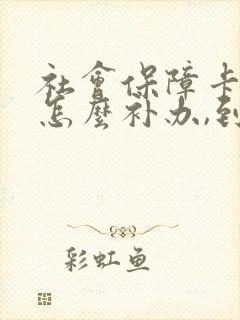 社會保障卡
怎麽补办,到
彩虹鱼